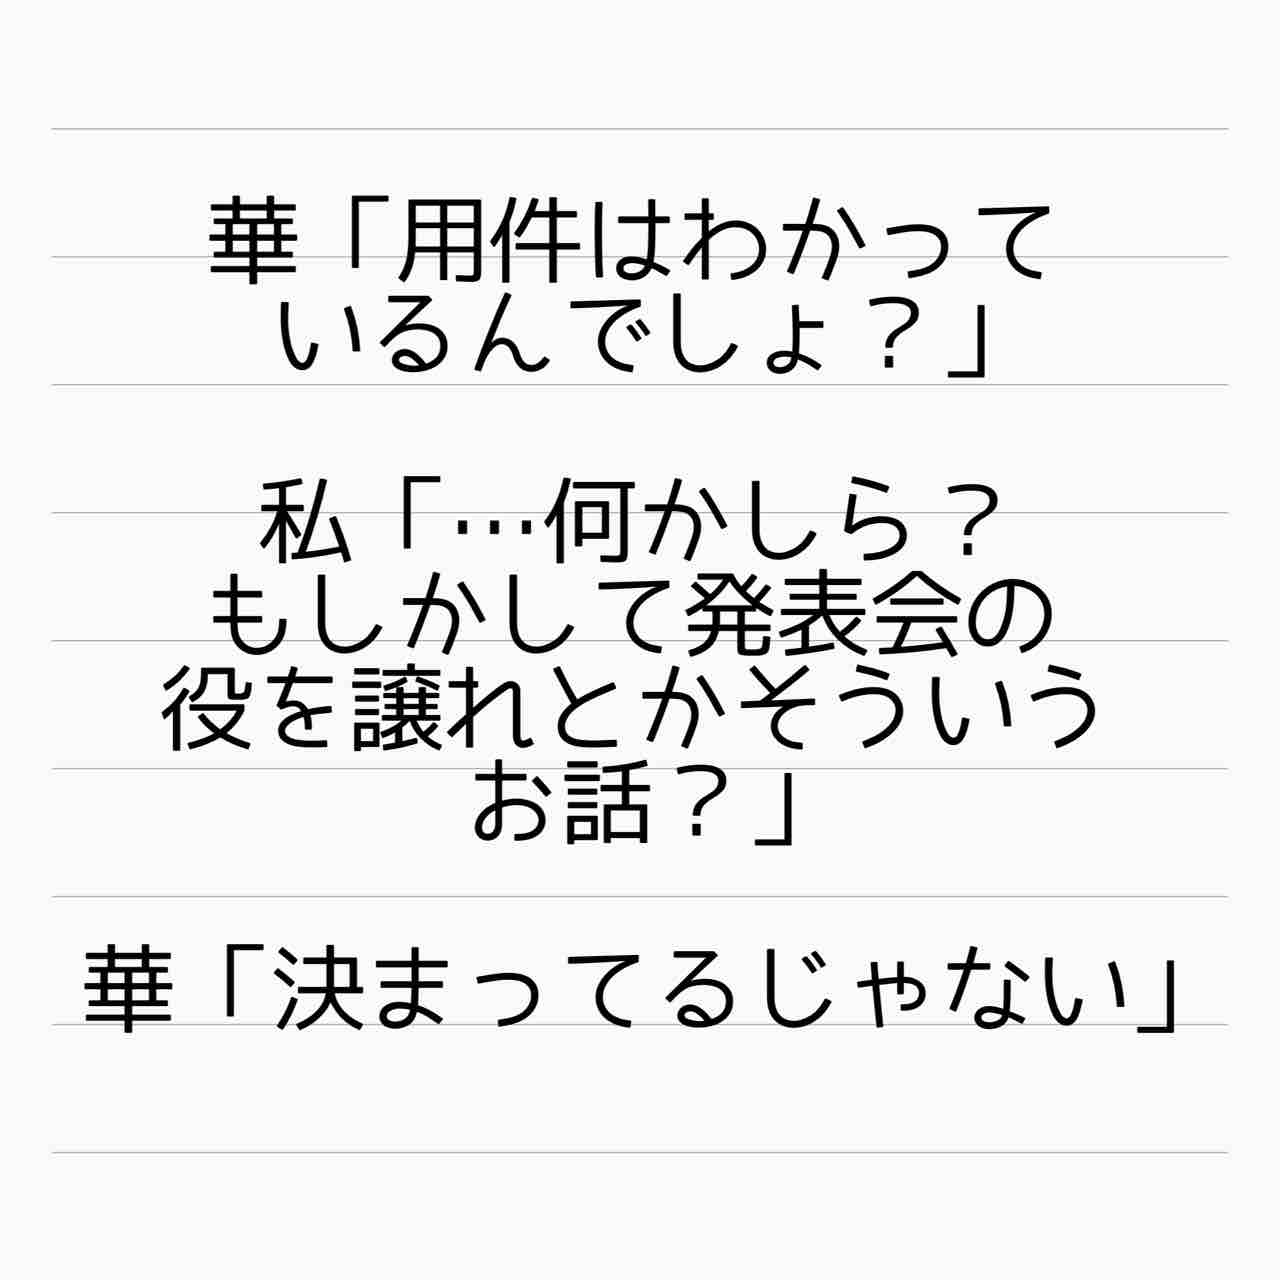 華「用件はわかって
いるんでしょ？」
私「…何かしら？
もしかして発表会の
役を譲れとかそういう
お話？」
華「決まってるじゃない」